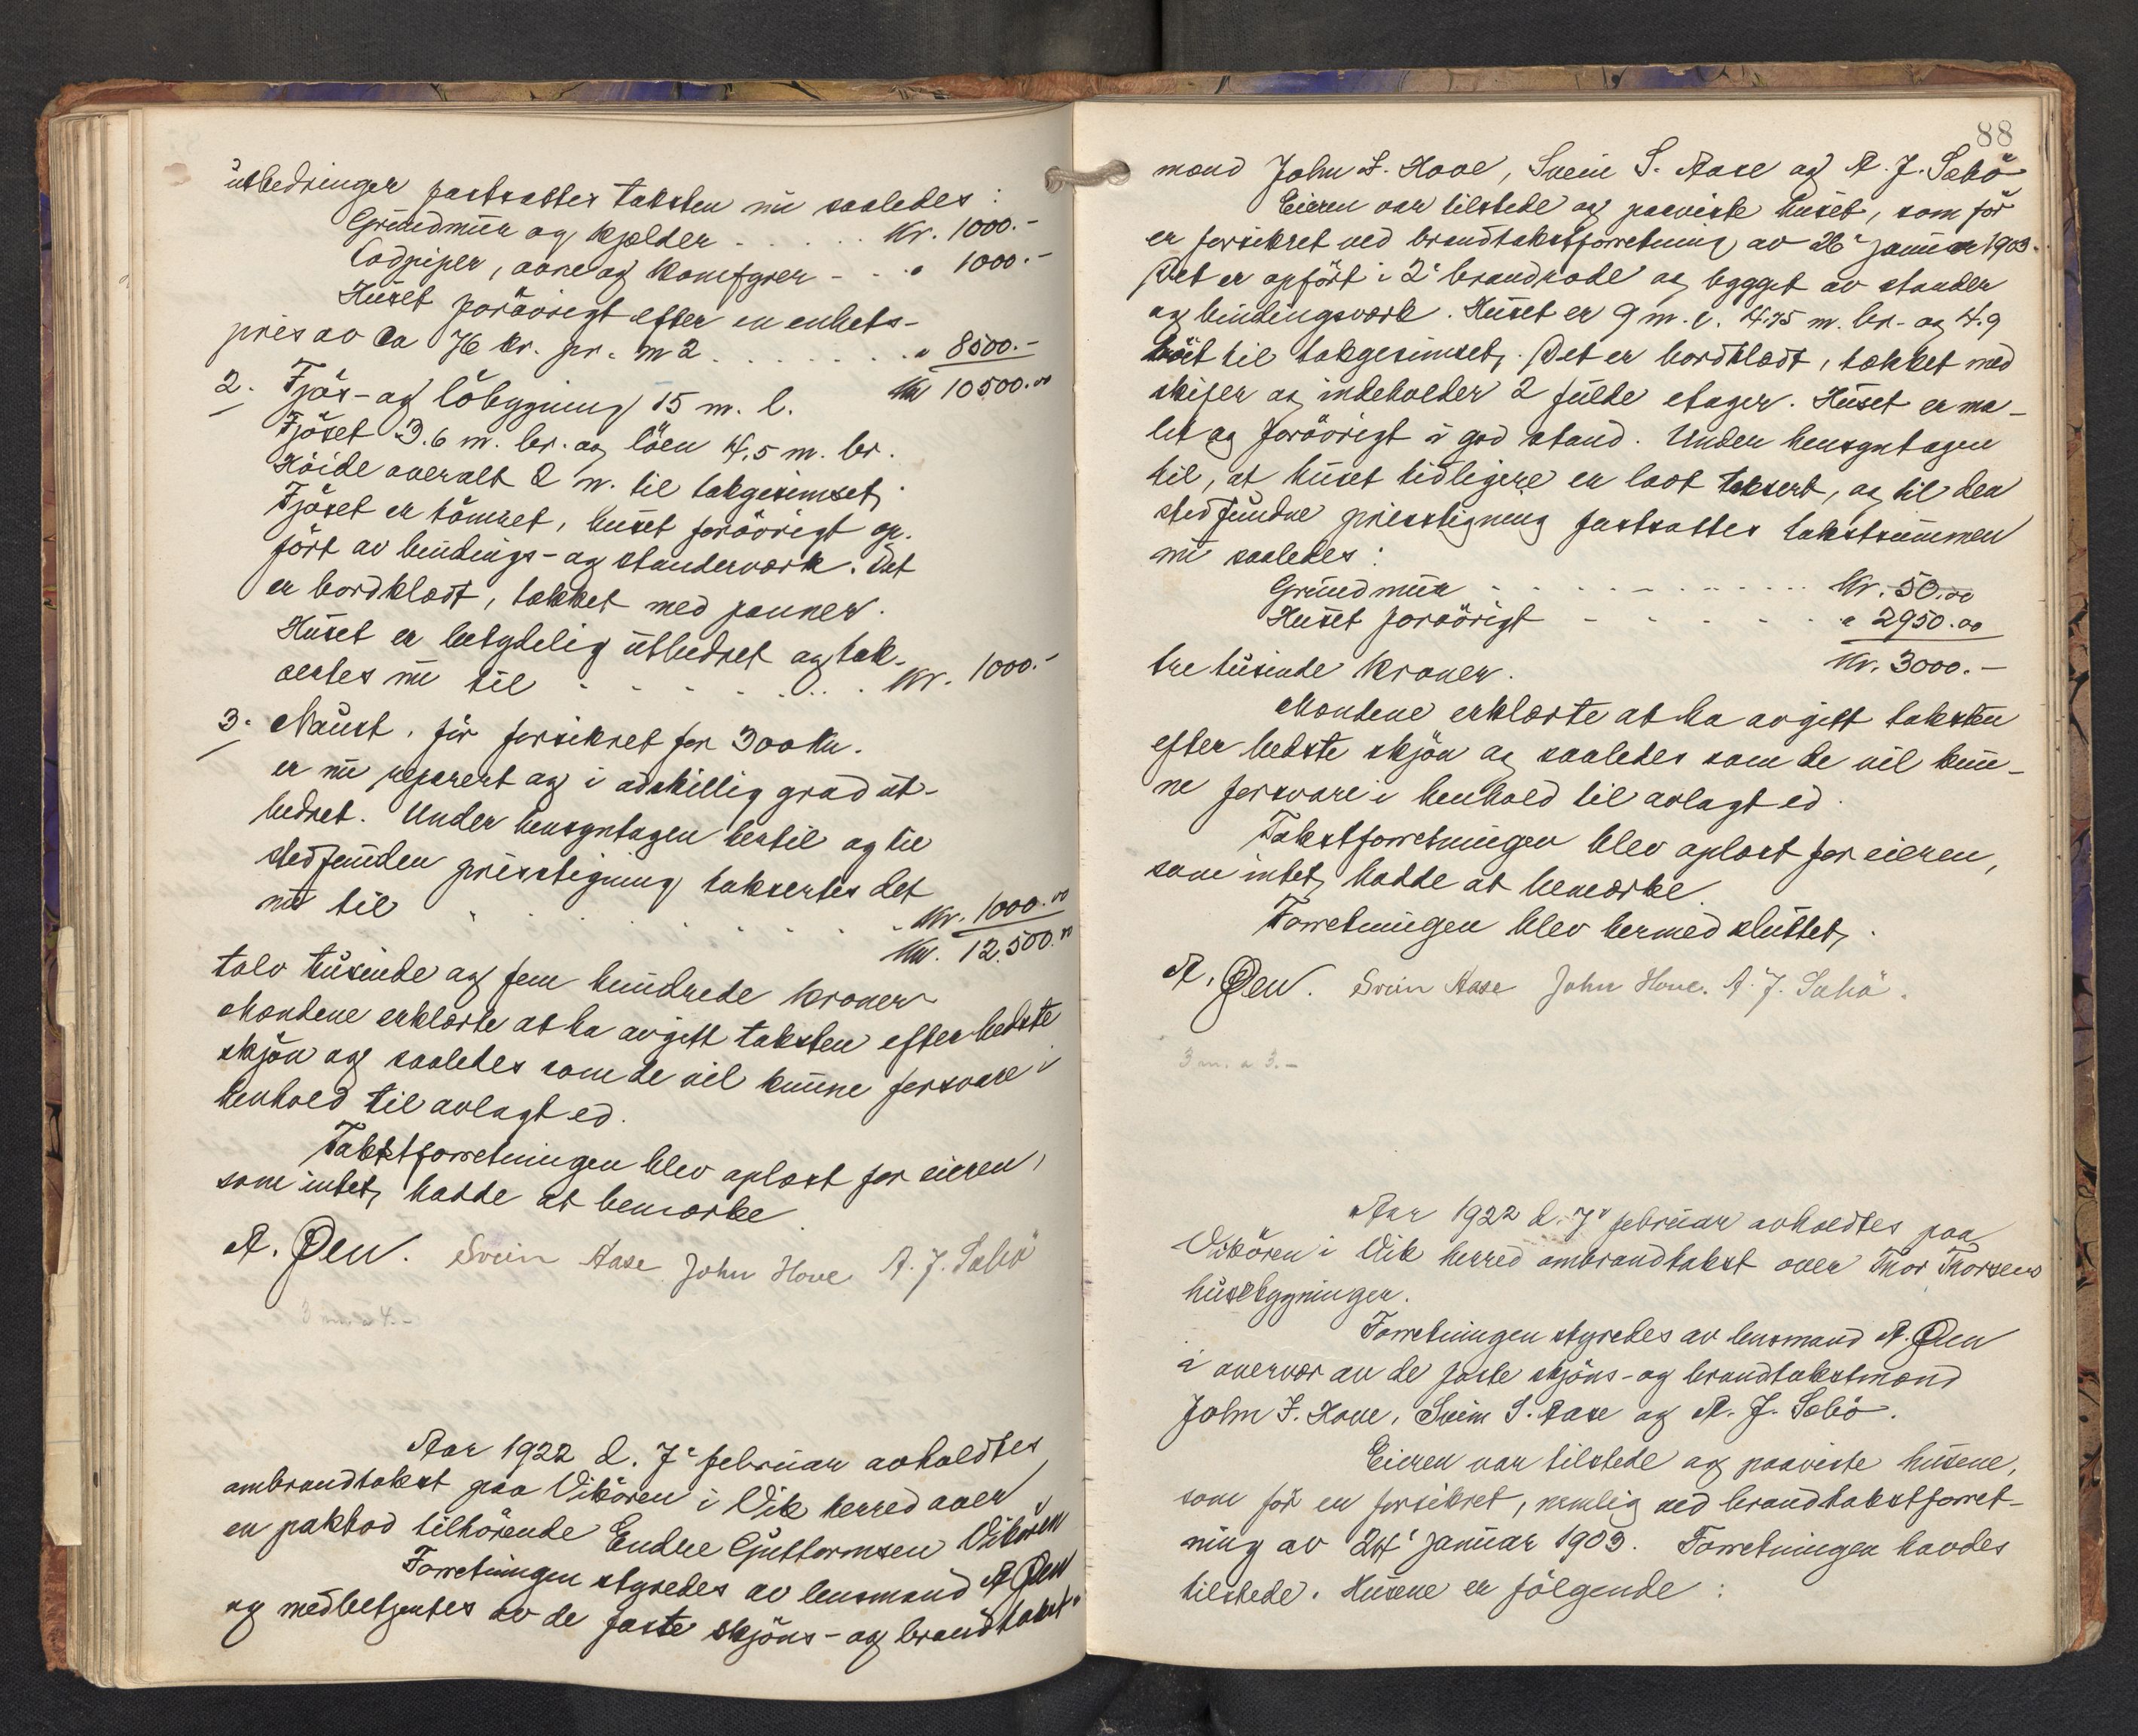 utbedringer fastsattes taksten nu saaledes:
Grundmur og kjelder . . . . . Kr. 1000.-
Lodpiper, aare og komfyrer - - . " 1000.-
Huset forövrigt efter en enhets-
pris av ca 76 kr. pr. m2 . . . . . . . " 8500.-
Kr 10500.00
2. Fjös- og löbygning 15 m. l.
Fjöset 3.6 m. br. og löen 4,5 m. br.
Höide overalt 2 m. til takgesimset,
Fjöset er tömret, huset forövrigt op-
fört av bindings- og standerverk. Det
er bordklædt, takket med panner.
Huset er betydelig utbedret og tak-
sertes nu til - - - - - . . . Kr. 1000.-
3. Naust, för forsikret for 300 Kr.
er nu reparert og i adskillig grad ut-
bedret. Under hensyntagen hertil og til
stedfunden prisstigning taksertes det
nu til . . . . . . . . . Kr. 1000.00
Kr. 12.500.00
tolv tusinde og fem hundrede kroner
Mændene erklærte at ha avgitt taksten efter bedste
skjön og saaledes som de vil kunne forsvare i
henhold til avlagt ed.
Takstforretningen blev oplæst for eieren,
som intet hadde at bemærke.
A. Øen. Svein Aase John Hove A. J. Sæbö
Aar 1922 d. 7' februar avholdtes
ombrandtakst paa Vikören i Vik herred over
en pakbod tilhörende Endre Guttormsen Vikören
Forretningen styredes av lensmand A Øen
og medbetjentes av de faste skjöns- og brandtakst-
88
mænd John I. Hove, Svein S. Aase og A. J. Sæbö
Eieren var tilstede og paaviste huset, som för
er forsikret ved brandtakstforretning av 26' januar 1903.
Det er opfört i 2' brandrode og bygget av stander
og bindingsverk. Huset er 9 m. l. 4.75 m. br. og 4.9
höit til takgesimset. Det er bordklædt, takket med
skifer og indeholder 2 fulde etager. Huset er ma-
let og forövrigt i god stand. Under hensyntagen
til, at huset tidligere er lavt taksert, og til den
stedfundne prisstigning fastsattes takstsummen
nu saaledes:
Grundmur - - - - - - . . . . . Kr. 50.00
Huset forövrigt - - - - - . " 2950.00
Kr. 3000.-
tre tusinde kroner.
Mændene erklærte at ha avgitt taksten
efter bedste skjön og saaledes som de vil kun-
ne forsvare i henhold til avlagt ed.
Takstforretningen blev oplæst for eieren,
som intet hadde at bemærke.
Forretningen blev hermed sluttet.
A. Øen. Svein Aase John Hove. A. J. Sæbö.
3 m. a 3.-
Aar 1922 d. 7' februar avholdtes paa
Vikören i Vik herred ombrandtakst over Thor Thorsens
husebygninger.
Forretningen styredes av lensmand A. Øen
i overvær av de faste skjöns- og brandtakstmænd
John I. Hove, Svein S. Aase og A. J. Sæbö.
Eieren var tilstede og paaviste husene,
som för er forsikret, nemlig ved brandtakstforret-
ning av 24' januar 1903. Forretningen havdes
tilstede. Husene er fölgende: